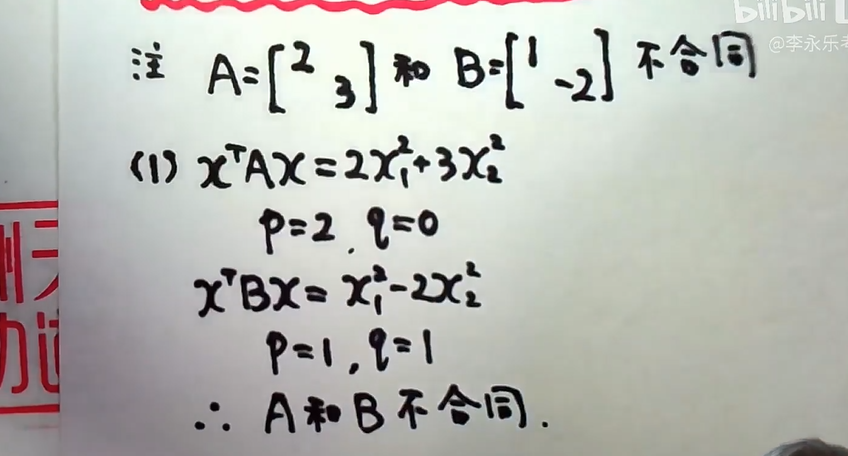 bilibili
@李永乐考
注 A=[2 3] 和 B=[1 -2] 不合同
(1) xᵀAx=2x₁²+3x₂²
p=2, q=0
xᵀBx=x₁²-2x₂²
p=1, q=1
∴ A和B不合同.